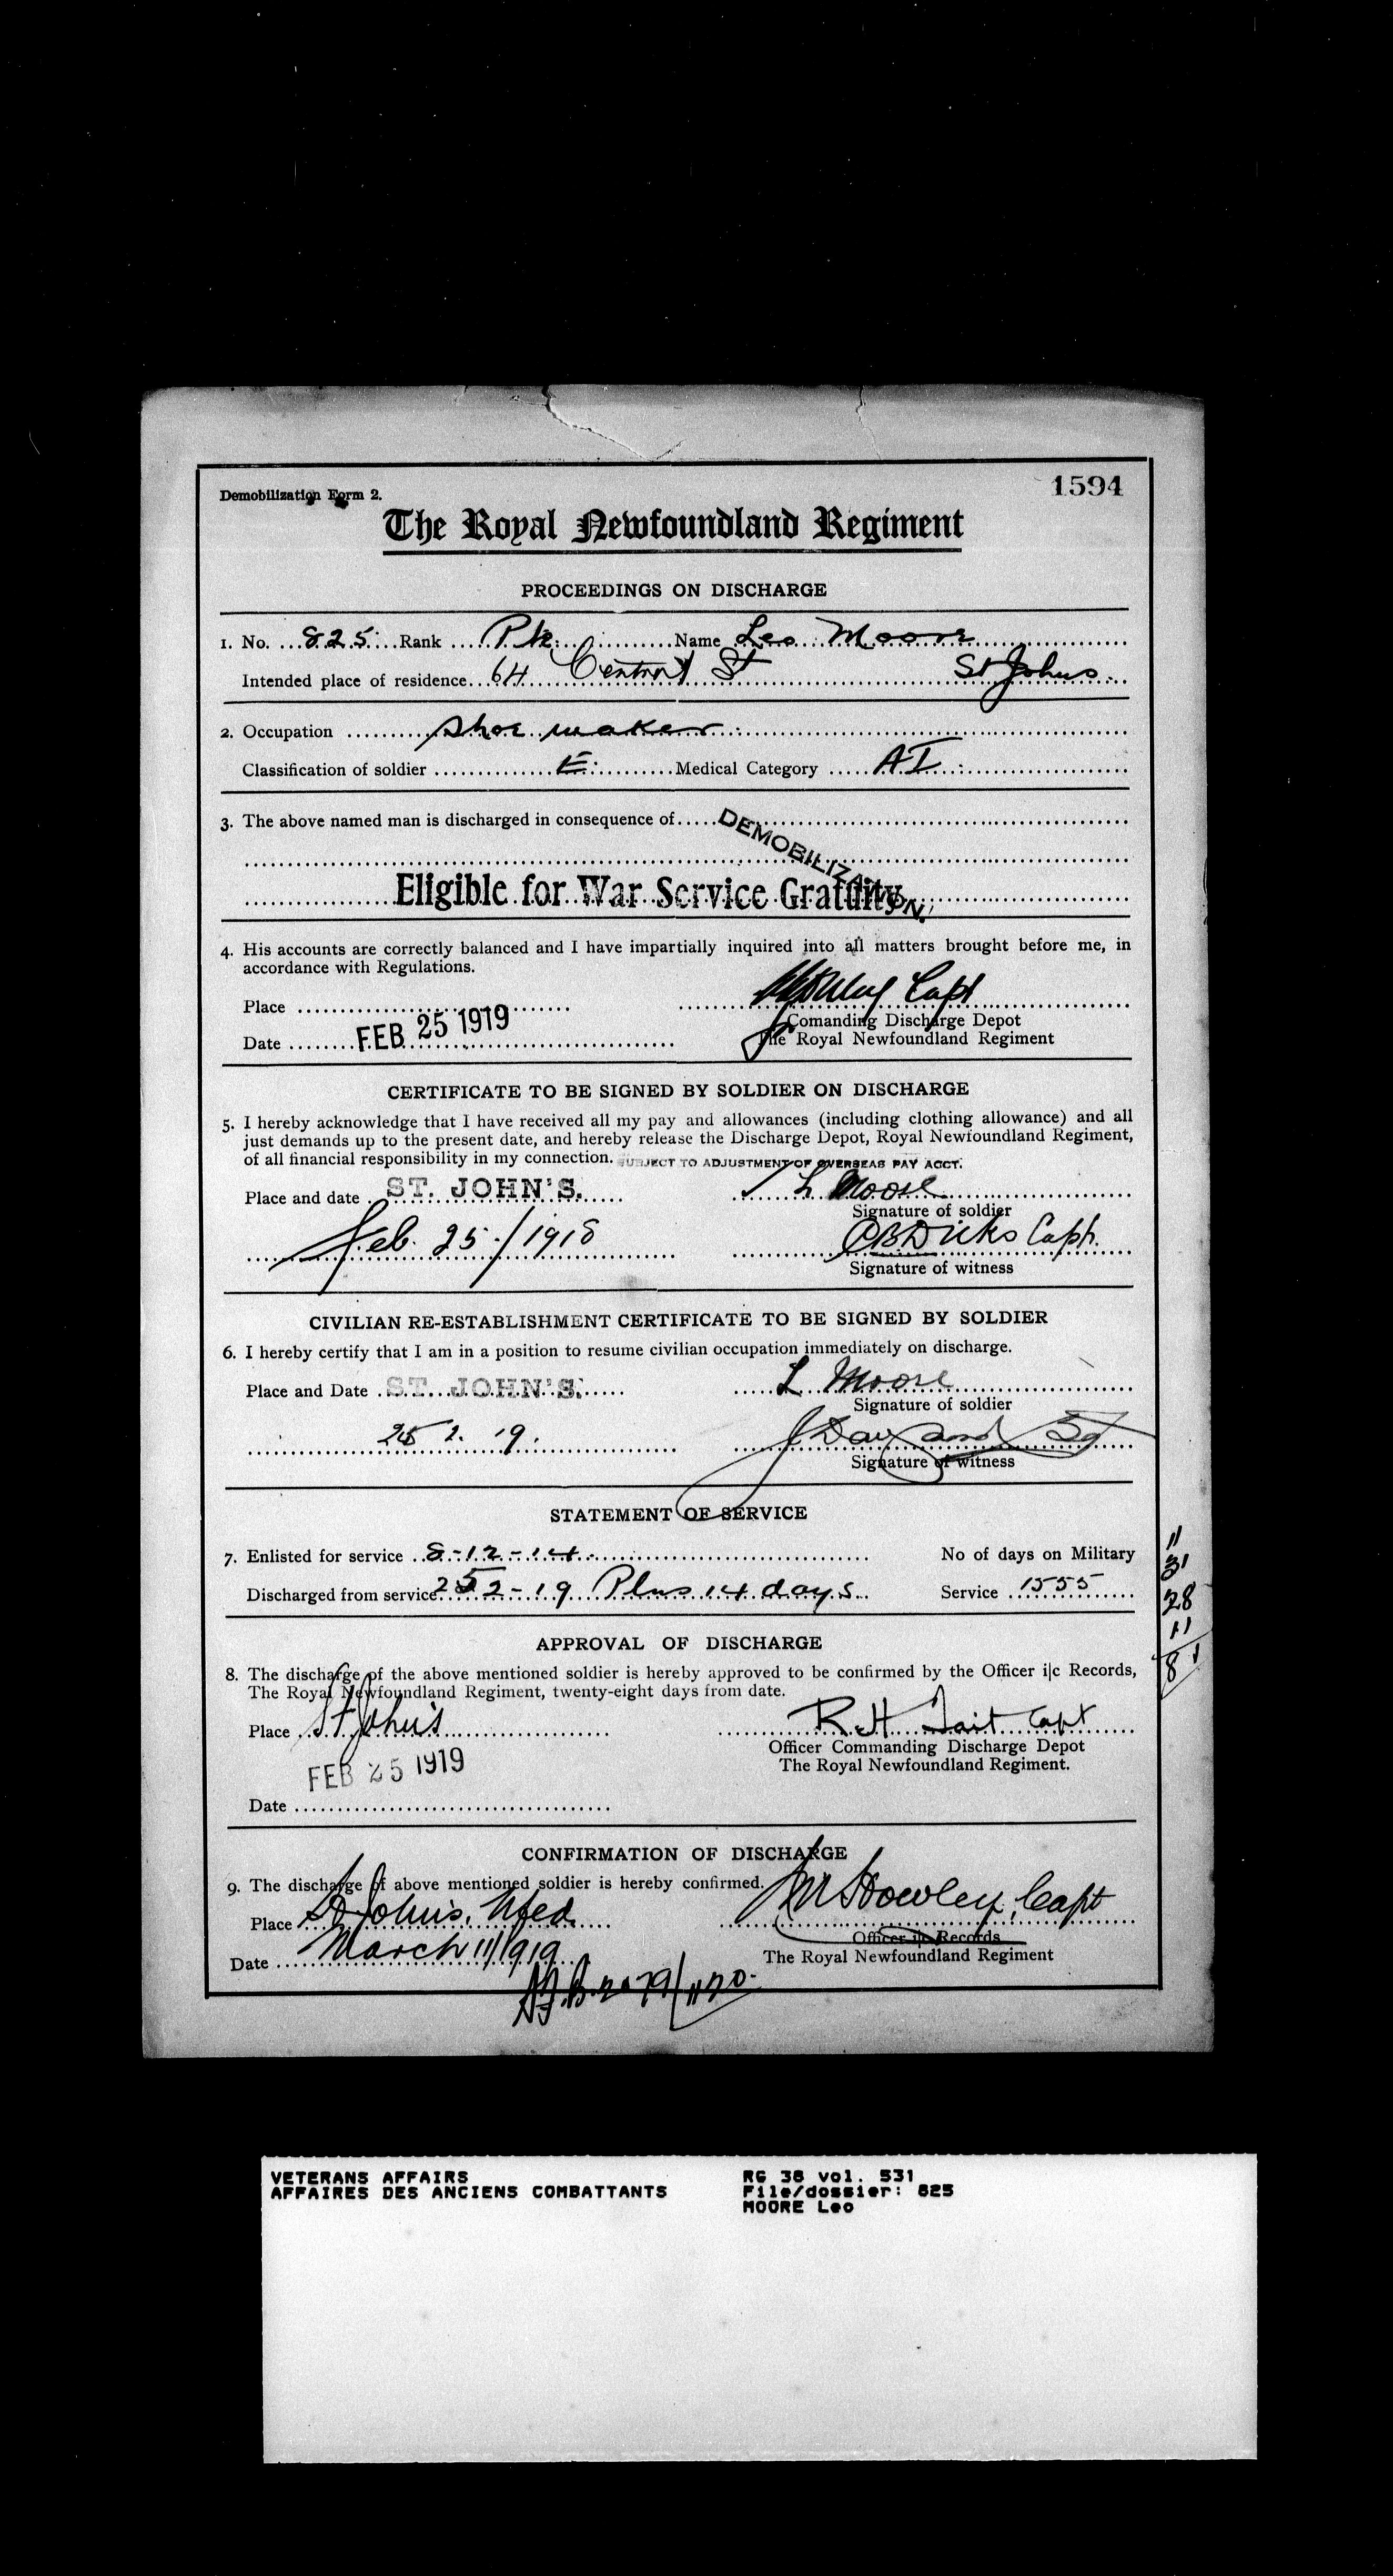 Demobilization Form 2.
1594
The Royal Newfoundland Regiment
PROCEEDINGS ON DISCHARGE
1. No. 825 Rank Pte. Name Leo Moore
Intended place of residence 64 Central St St Johns
2. Occupation shoe maker
Classification of soldier E. Medical Category A I
3. The above named man is discharged in consequence of DEMOBILIZATION.
Eligible for War Service Gratuity
4. His accounts are correctly balanced and I have impartially inquired into all matters brought before me, in
accordance with Regulations.
Place Capt
Comanding Discharge Depot
Date FEB 25 1919
The Royal Newfoundland Regiment
CERTIFICATE TO BE SIGNED BY SOLDIER ON DISCHARGE
5. I hereby acknowledge that I have received all my pay and allowances (including clothing allowance) and all
just demands up to the present date, and hereby release the Discharge Depot, Royal Newfoundland Regiment,
of all financial responsibility in my connection. SUBJECT TO ADJUSTMENT OF OVERSEAS PAY ACCT.
Place and date ST. JOHN'S. L Moore
Signature of soldier
Feb. 25/1918 C B Dicks Capt.
Signature of witness
CIVILIAN RE-ESTABLISHMENT CERTIFICATE TO BE SIGNED BY SOLDIER
6. I hereby certify that I am in a position to resume civilian occupation immediately on discharge.
Place and Date ST. JOHN'S. L Moore
Signature of soldier
25 2. 19.
Signature of witness
STATEMENT OF SERVICE
7. Enlisted for service 8-12-14. No of days on Military
Discharged from service 25 2-19 Plus 14 days Service 1555
11
31
28
11
81
APPROVAL OF DISCHARGE
8. The discharge of the above mentioned soldier is hereby approved to be confirmed by the Officer i|c Records,
The Royal Newfoundland Regiment, twenty-eight days from date.
Place St John's R H Tait Capt
Officer Commanding Discharge Depot
The Royal Newfoundland Regiment.
FEB 25 1919
Date
CONFIRMATION OF DISCHARGE
9. The discharge of above mentioned soldier is hereby confirmed.
Place St John's, Nfld. Howley, Capt
Officer i|c Records
Date March 11/1919
The Royal Newfoundland Regiment
VETERANS AFFAIRS RG 38 vol. 531
AFFAIRES DES ANCIENS COMBATTANTS File/dossier: 825
MOORE Leo